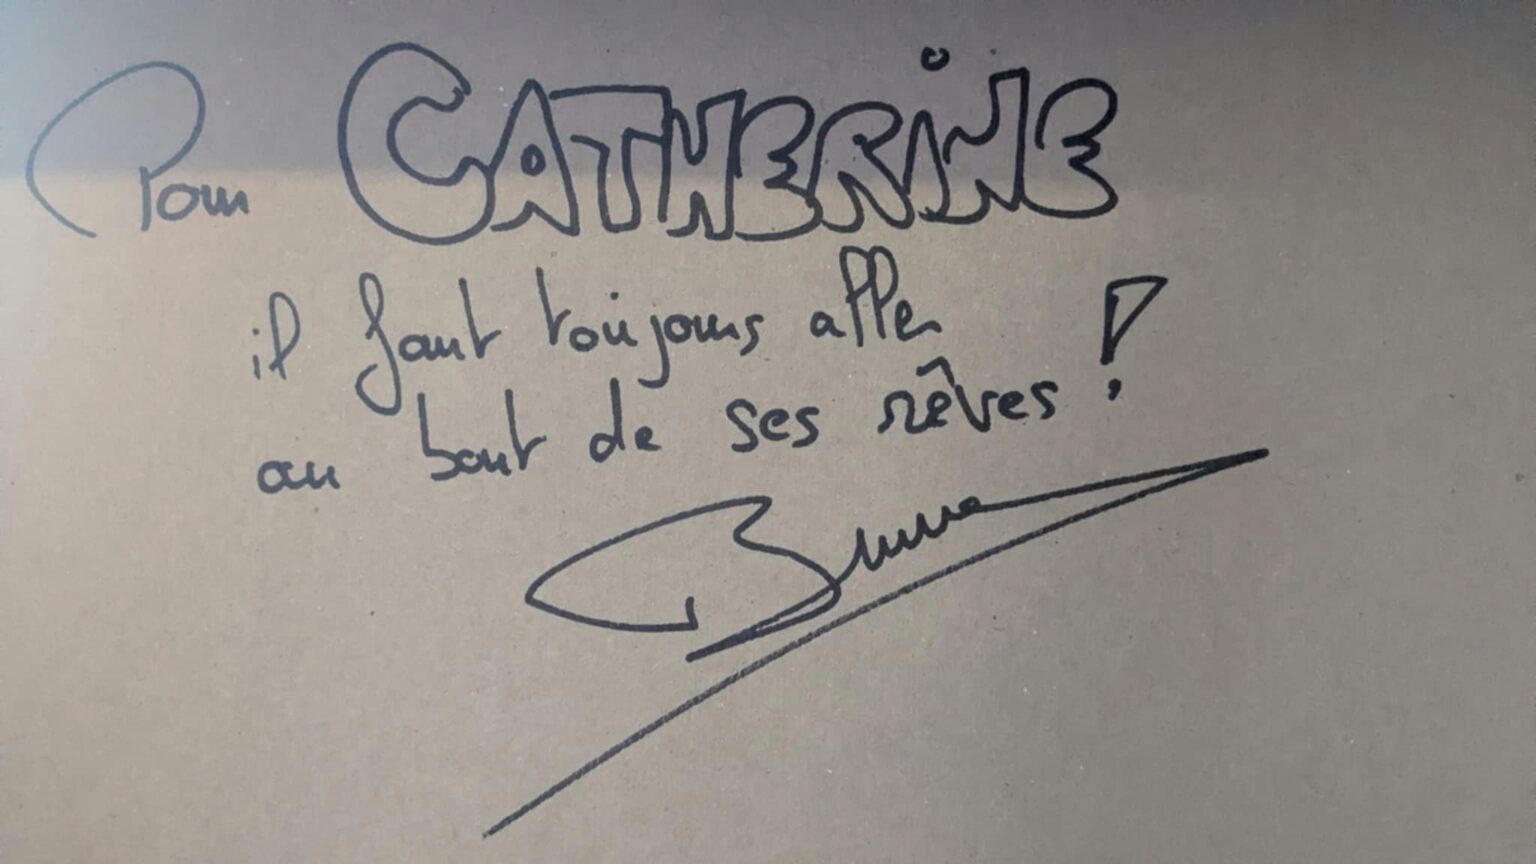 Pour CATHERiNE
il faut toujours aller
au bout de ses rêves !